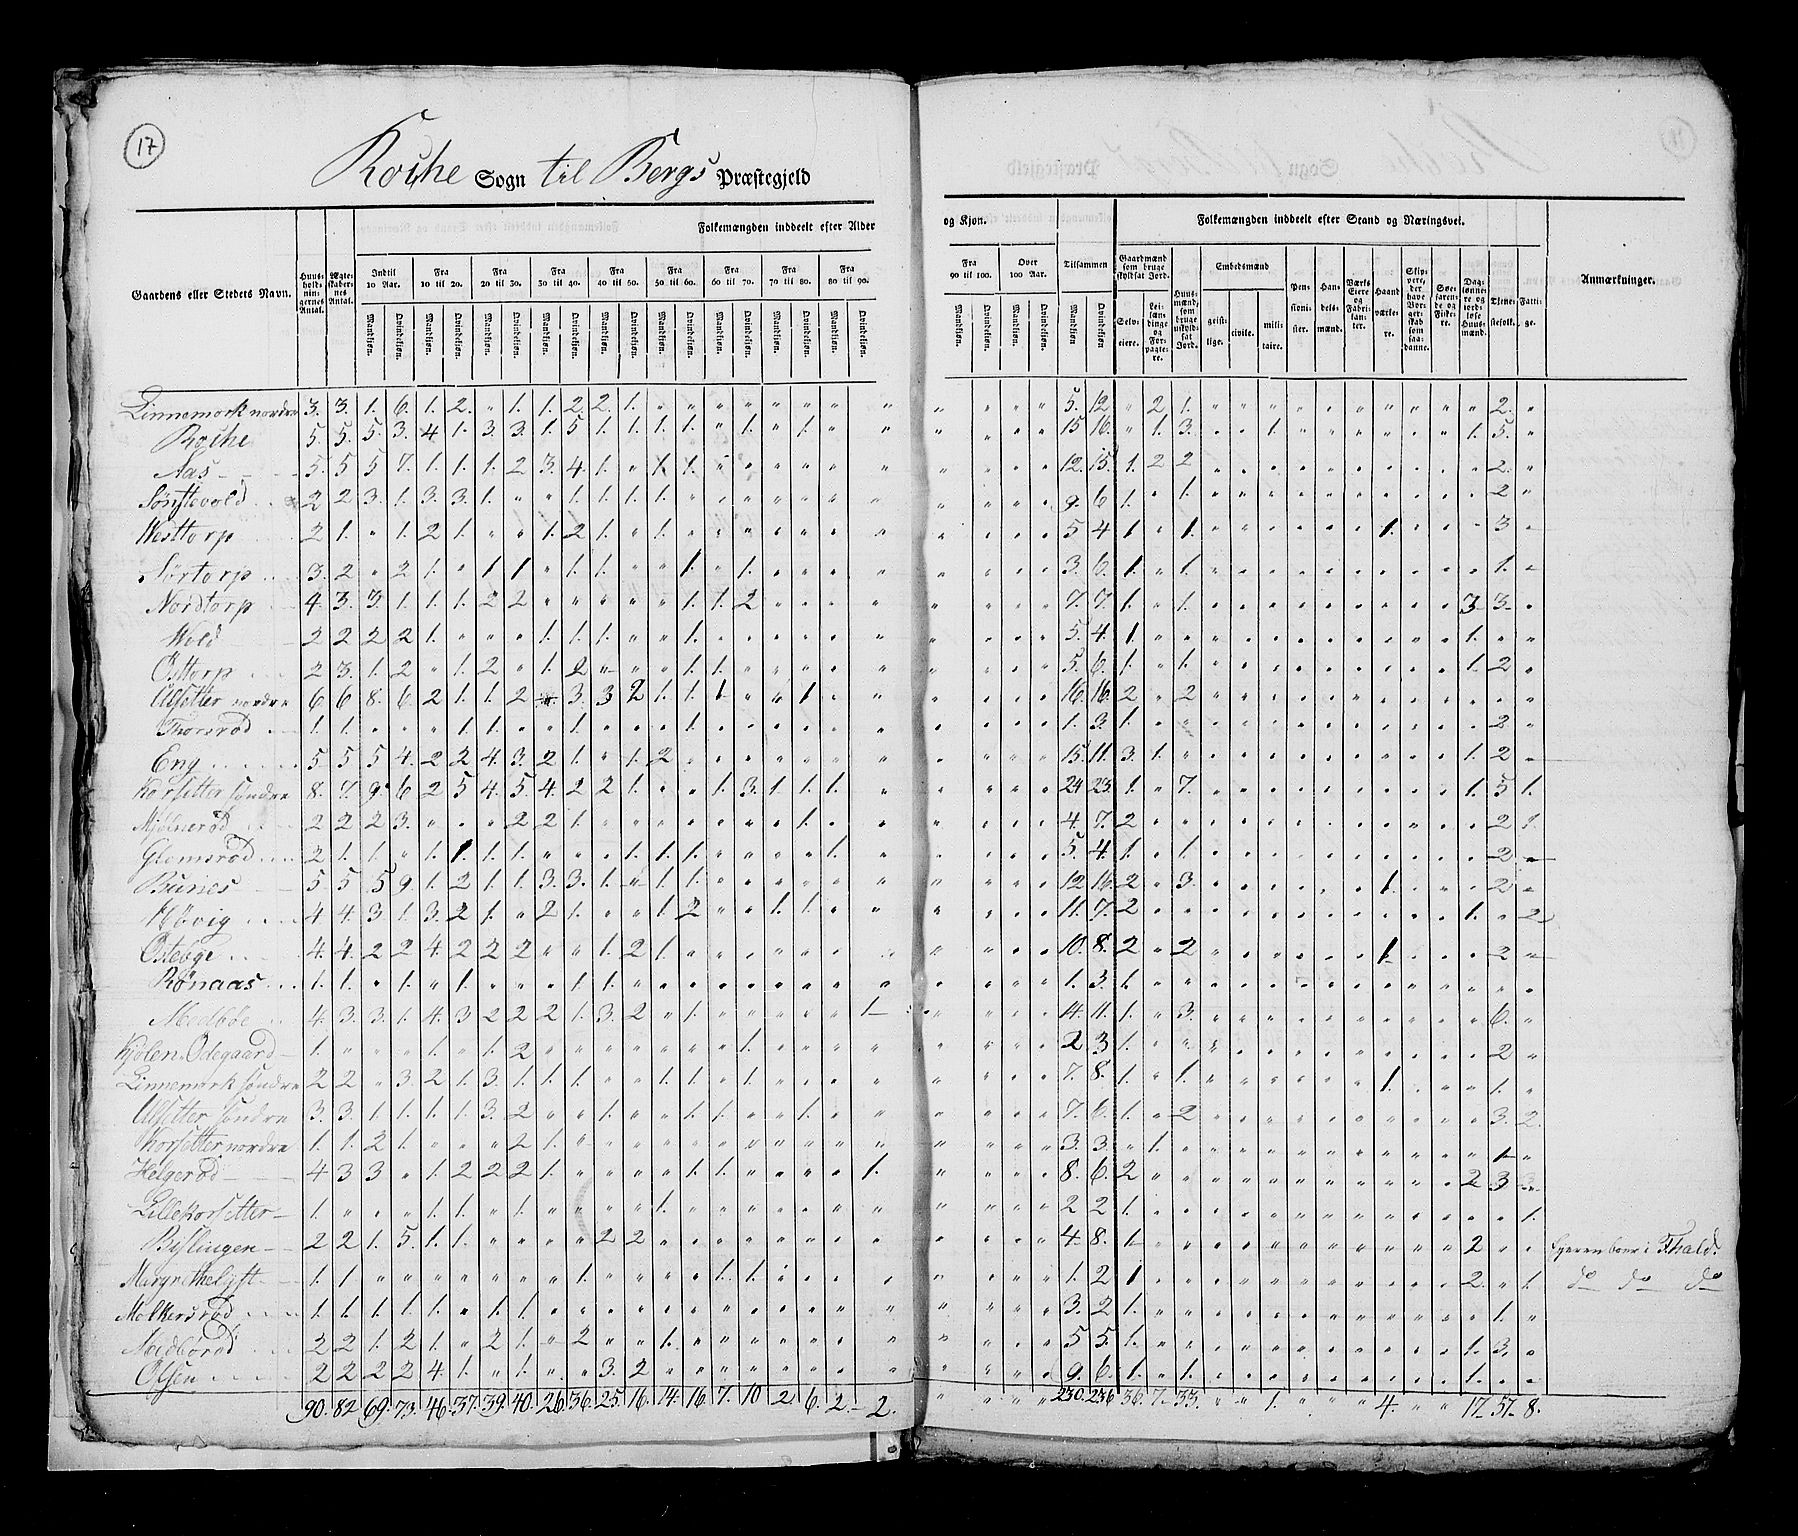 17
Sogn til Bergs Præstegjeld
og Kjøn.
Folkemængden inddeelt efter Alder
Folkemængden inddeelt efter Stand og Næringsvei.
Gaardens eller Stedets Navn.
Huusholdningernes Antal.
Ægteskabernes Antal.
Indtil 10 Aar.
Fra 10 til 20.
Fra 20 til 30.
Fra 30 til 40.
Fra 40 til 50.
Fra 50 til 60.
Fra 60 til 70.
Fra 70 til 80.
Fra 80 til 90.
Fra 90 til 100.
Over 100 Aar.
Tilsammen
Mandkjøn. Qvindekjøn.
Gaardmænd som bruge skyldsat Jord.
Selveiere.
Leilændinge og Forpagtere.
Huusmænd, som bruge uskyldsat Jord.
Embedsmænd
geistlige.
civile.
militaire.
Pensionister.
Handelsmænd.
Værks Eiere og Fabrikanter.
Haandværkere.
Skippere, der have Borgerskab som saadanne.
Søefarende og Fiskere.
Dagleiere og jordløse Huusmænd.
Tjenestefolk.
Fattige.
Anmærkninger.
Linnemark nordre 3. 3. 1. 6. 1. 2. " 1. 1. 2. 2. 1. 5. 12 " 2 1. 2.
5. 5. 5. 3. 4 1. 3. 3. 1. 5 1. 1. 1. 1. 1. 1. 15 16. 1. 3. 1. 1. 5.
Aas 5. 5 5 7. 1. 1. 1. 2 3. 4. 1. 12. 15. 1. 2 2 2
Sönstevold 2 2 3. 1. 3. 3. 1. 1. 1. 1. 1. 9. 6 1. 1. 2
Westtorp 2 1. 1. 2 1. 1. 2 1. 1. 5 4 1. 1. 1. 3
Sørtorp 3. 2 2 1. 1 1. 1. 1. 1. 1. 3. 6. 1. 1. 1.
Nordtorp 4. 3. 3. 1. 1. 1. 2 2 1. 1. 2 7. 7. 1. 1. 3 3.
Wold 2 2 2 2 1. 1. 1. 1. 1. 5. 4. 1. 1.
Østtorp 2 3. 1. 2 1. 2 1. 2 1. 1. 5. 6. 1. 1. 1. 2
Ulsetter nordre 6 6 8. 6. 2 1. 1. 2 3. 3 2 1. 1. 1 1 16. 16. 2 2
Thorsrød 1. 1. 1. 1. 1. 1. 1. 3. 1. 2
Eng 5 5 5 4. 2 2 4. 3. 2 1. 1. 2 15. 11. 3. 1. 1. 2
Korsetter söndre 8. 7. 9. 6 2 5 4. 5. 4. 2 2 1. 1. 3. 1. 1. 1. 24 23. 1. 7. 1. 5 1.
Mjölnerød 2 2 2 3. 2 2 1. 1. 4. 7. 2 2
Glomsrød 2 1. 1. 1. 1. 1. 1. 1. 1. 1. 1. 5. 4. 1. 1. 2
5. 5 5 9. 1. 2 1. 1. 3. 3. 1. 1. 1. 12 16. 2 3. 1. 2
4. 4. 3 1. 3. 2 1. 2 1. 1. 2 1. 1. 11. 7. 2 1. 2
Østebye 4. 4. 2 2 4. 2 2 2 1. 2 1. 10. 8. 2 2 1. 2
Rønaas 1. 1. 1. 1. 1. 1. 1. 3. 1.
4. 3. 3. 1. 4. 3 2 2 2 1. 3. 2 1. 1. 11. 1. 3. 6.
Kjölen Ödegaard 1. 1. 1. 2 1. 2 3. 1. 2
Linnemark söndre 2 2 3. 2 1. 3. 1. 1. 1. 1. 1. 7. 8. 1. 1. 1. 1.
Ulsetter söndre 3. 3. 1. 1. 1. 1. 3. 2 1. 1. 1. 1. 7. 6. 1. 2 3. 2.
Korsetter nordre 1. 1. 2 1. 2 1. 3. 3. 1. 1
Helgerød 4 3 3 1. 2 2 2 1. 1. 1. 1. 8. 6. 2 2 3
Lillekorsetter 1. 1. 1. 1. 1. 2 2 1. 1.
Bislingen 2 2 1. 5. 1. 1. 2 2 4. 8. 1 2
Eyeren boer i Fhald.
1. 1 1. 1. 1. 1. 2 1 2. 1.
do do do
1. 1. 1. 1. 1. 1. 1. 3. 2 1. 1.
2 2 1. 2 1. 2 1. 2 1. 5 5. 1. 1. 3.
2 2 2 2 4. 1. 1. 3. 2 9. 6. 1. 1. 1.
90. 82 69. 73. 46. 37. 39. 40. 26. 36. 25. 16. 14. 16. 7. 10 2. 6. 2. 2. 230. 236 36. 7. 33. 1. 4. 17 57. 8.